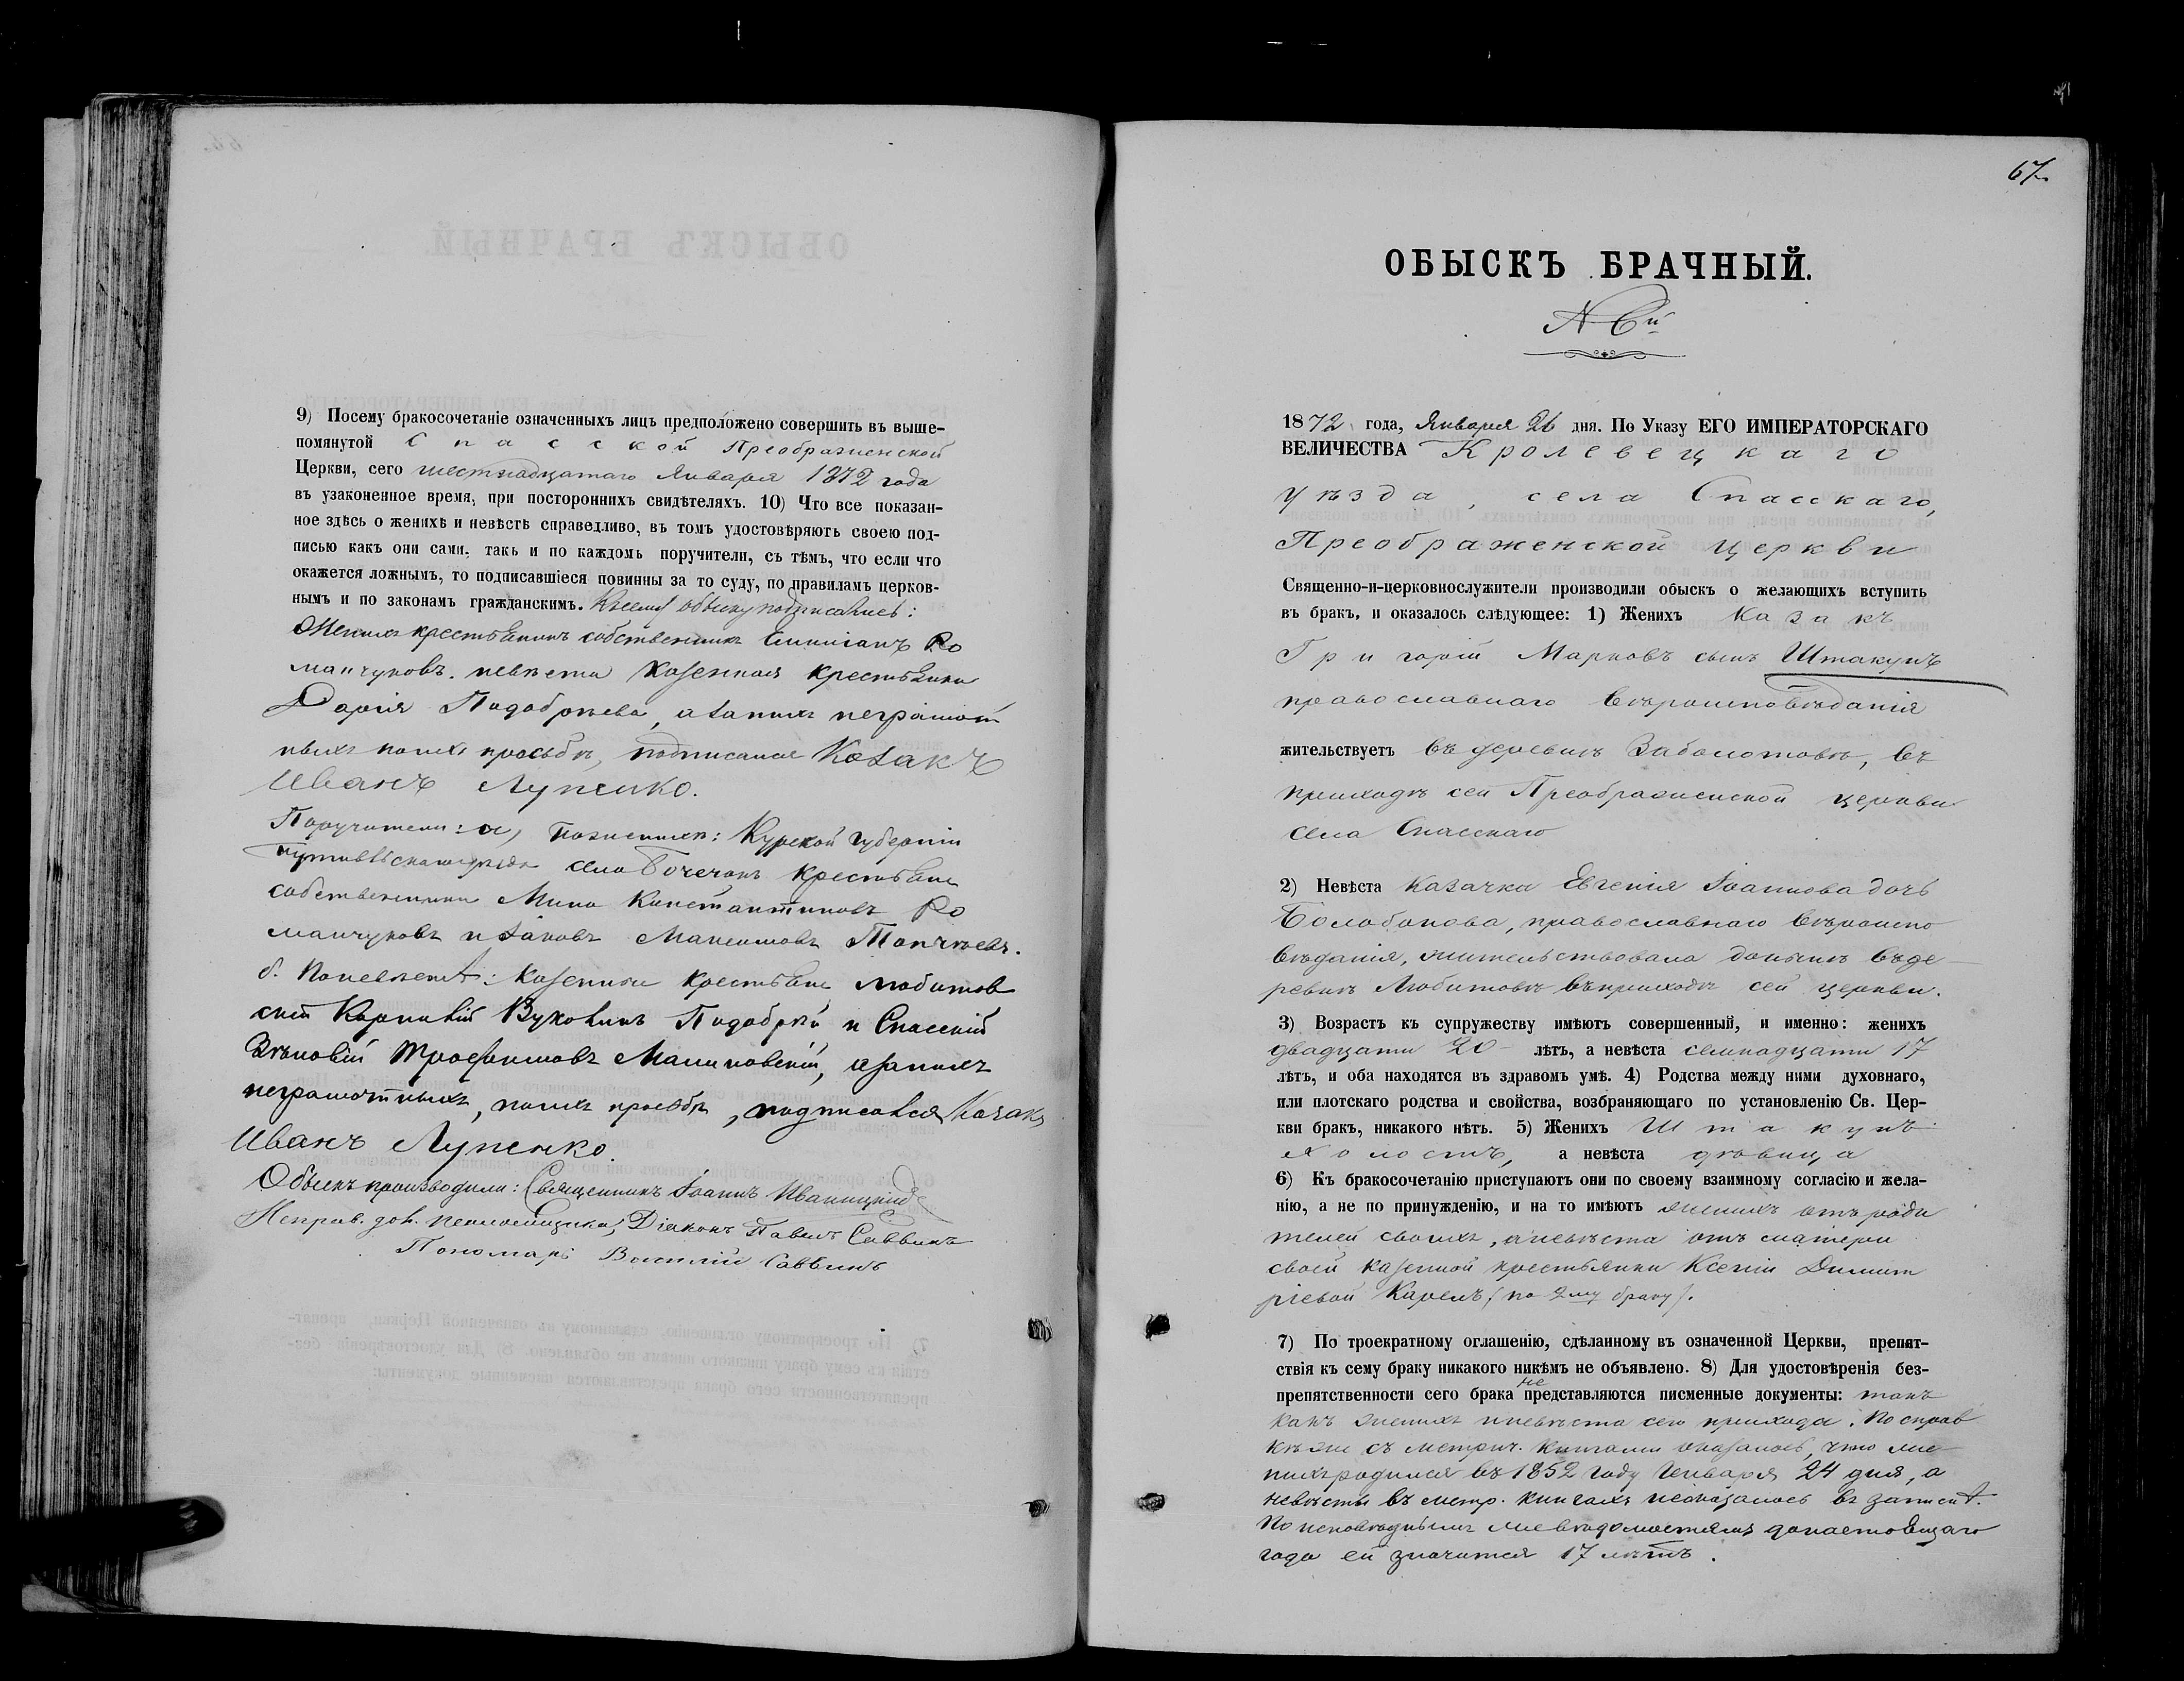 9) Посему бракосочетаніе означенныхъ лицъ предположено совершить въ выше-
помянутой Спасской Преображенской
Церкви, сего шестнадцатаго Января 1872 года
въ узаконенное время, при постороннихъ свидѣтеляхъ. 10) Что все показан-
ное здѣсь о женихѣ и невѣстѣ справедливо, въ томъ удостовѣряютъ своею под-
писью какъ они сами, такъ и по каждомъ поручители, съ тѣмъ, что если что
окажется ложнымъ, то подписавшіеся повинны за то суду, по правиламъ церков-
нымъ и по законамъ гражданскимъ. Къ сему обыску подписались:
Женихъ крестьянинъ собственникъ Ро
манчуковъ. невѣста казенная крестьянка
Дарія Подобрѣева, а за нихъ неграмот
ныхъ по ихъ просьбѣ, подписался Козакъ
Иванъ Лупенко.
Поручители: а, по женихѣ: Курской губерніи
Путивльскаго уѣзда села Бочечокъ крестьяне
собственники Мина Константиновъ Ро
манчуковъ и Яковъ Максимовъ
б. По невѣстѣ: казенные крестьяне Любитов
скій Корнилій Подобрѣй и Спасскій
Зѣновій Трофимовъ Малиновскій, а за нихъ
неграмотныхъ, по ихъ просьбѣ, подписался Козакъ
Иванъ Лупенко.
Обыскъ производили: Священникъ Іоаннъ Иваницкій
Исправ. дол. псаломщика, Діаконъ Павелъ Саввинъ
Пономарь Василій Саввинъ
67.
ОБЫСКЪ БРАЧНЫЙ.
№ 6й
1872 года, Января 26 дня. По Указу ЕГО ИМПЕРАТОРСКАГО
ВЕЛИЧЕСТВА Кролевецкаго
уѣзда, села Спасскаго,
Преображенской церкви
Священно-и-церковнослужители производили обыскъ о желающихъ вступить
въ бракъ, и оказалось слѣдующее: 1) Женихъ Казакъ
Григорій Марковъ сынъ Штакунъ
православнаго вѣроисповѣданія
жительствуетъ въ деревнѣ Заболотовѣ, въ
приходѣ сей Преображенской церкви
села Спасскаго
2) Невѣста Казачка Евгенія Іоаннова дочь
Болобонова, православнаго вѣроиспо
вѣданія, жительствовала донынѣ въ де-
ревнѣ Любитовѣ въ приходѣ сей церкви.
3) Возрастъ къ супружеству имѣютъ совершенный, и именно: женихъ
двадцати 20 лѣтъ, а невѣста семнадцати 17
лѣтъ, и оба находятся въ здравомъ умѣ. 4) Родства между ними духовнаго,
или плотскаго родства и свойства, возбраняющаго по установленію Св. Цер-
кви бракъ, никакого нѣтъ. 5) Женихъ Штакунъ
холостъ, а невѣста дѣвица
6) Къ бракосочетанію приступаютъ они по своему взаимному согласію и жела-
нію, а не по принужденію, и на то имѣютъ женихъ отъ роди
телей своихъ, а невѣста отъ матери
своей казенной крестьянки Ксеніи Димит
ріевой Карепъ (по 2му браку).
7) По троекратному оглашенію, сдѣланному въ означенной Церкви, препят-
ствія къ сему браку никакого никѣмъ не объявлено. 8) Для удостовѣренія без-
препятственности сего брака не представляются писменные документы: такъ
какъ женихъ и невѣста сего прихода. По справ
кѣ же съ метрич. книгами оказалось, что же
нихъ родился въ 1852 году Генваря 24 дня, а
невѣсты въ метр. книгахъ неоказалось въ записѣ.
По исповѣднымъ же вѣдомостямъ до настоящаго
года ей значится 17 лѣтъ.